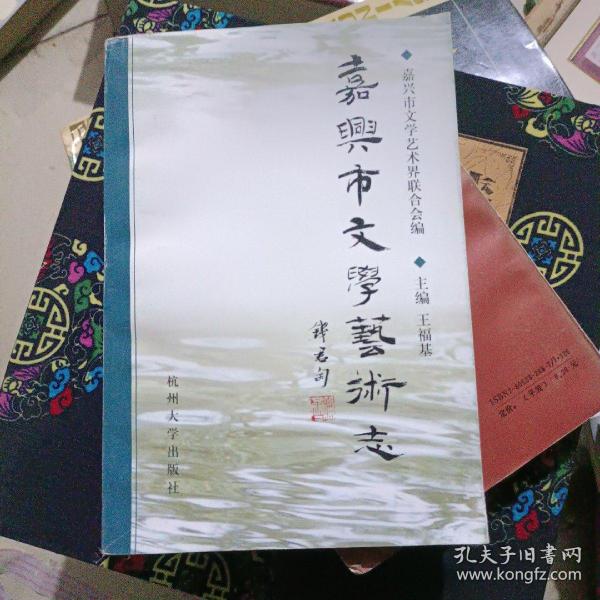 嘉兴市文学艺术界联合会编
主编 王福基
嘉興市文學藝術志
杭州大学出版社
定价：
孔夫子旧书网
www.kongfz.com